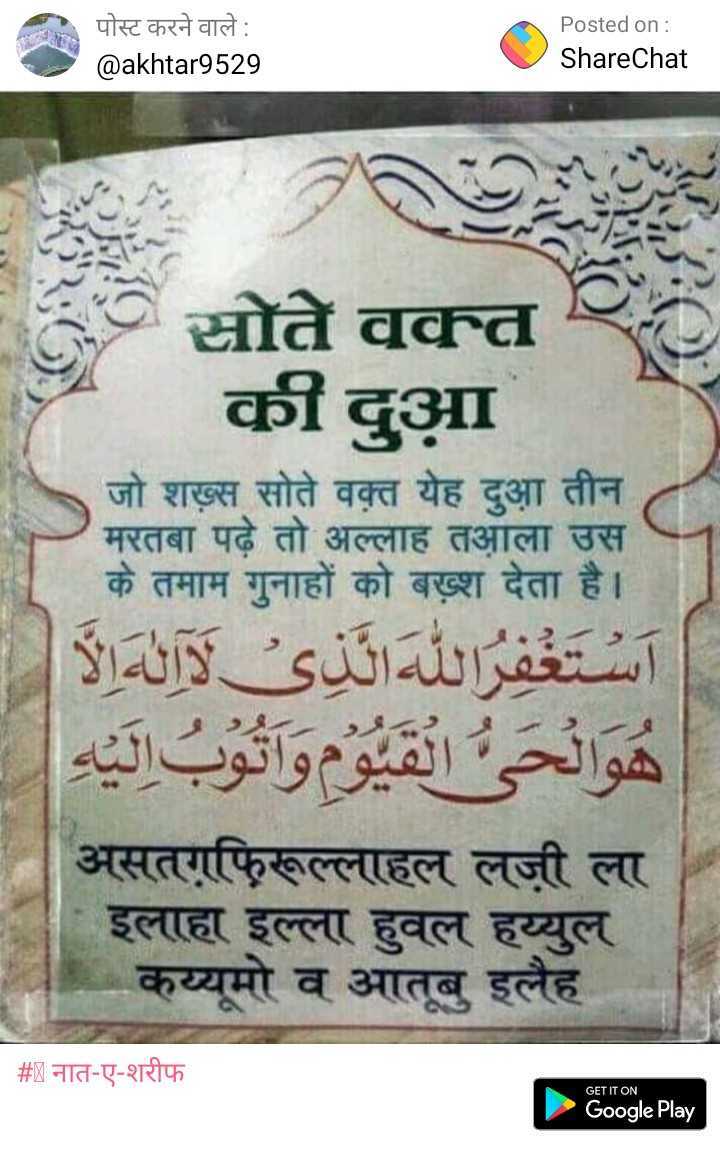 पोस्ट करने वाले :
@akhtar9529
Posted on :
ShareChat
सोते वक्त
की दुआ़
जो शख़्स सोते वक़्त येह दुआ़ तीन
मरतबा पढ़े तो अल्लाह तआ़ला उस
के तमाम गुनाहों को बख़्श देता है।
اَسْتَغْفِرُ اللّٰهَ الَّذِىْ لَآ اِلٰهَ اِلَّا
هُوَ الْحَىُّ الْقَيُّوْمُ وَاَتُوْبُ اِلَيْهِ
असतग़फ़िरूल्लाहल लज़ी ला
इलाहा इल्ला हुवल हय्युल
कय्यूमो व आतूबु इलैह
# नात-ए-शरीफ
GET IT ON
Google Play